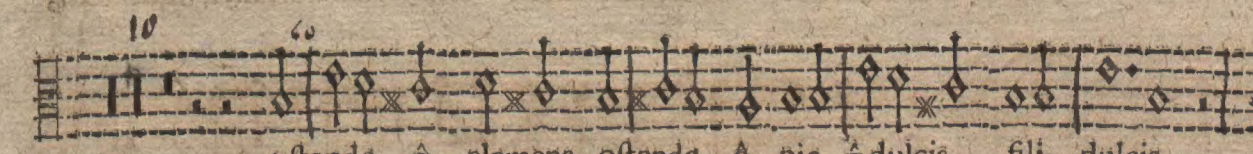 10 60
ostende ô clemens ostende ô pie ô dulcis fili dulcis